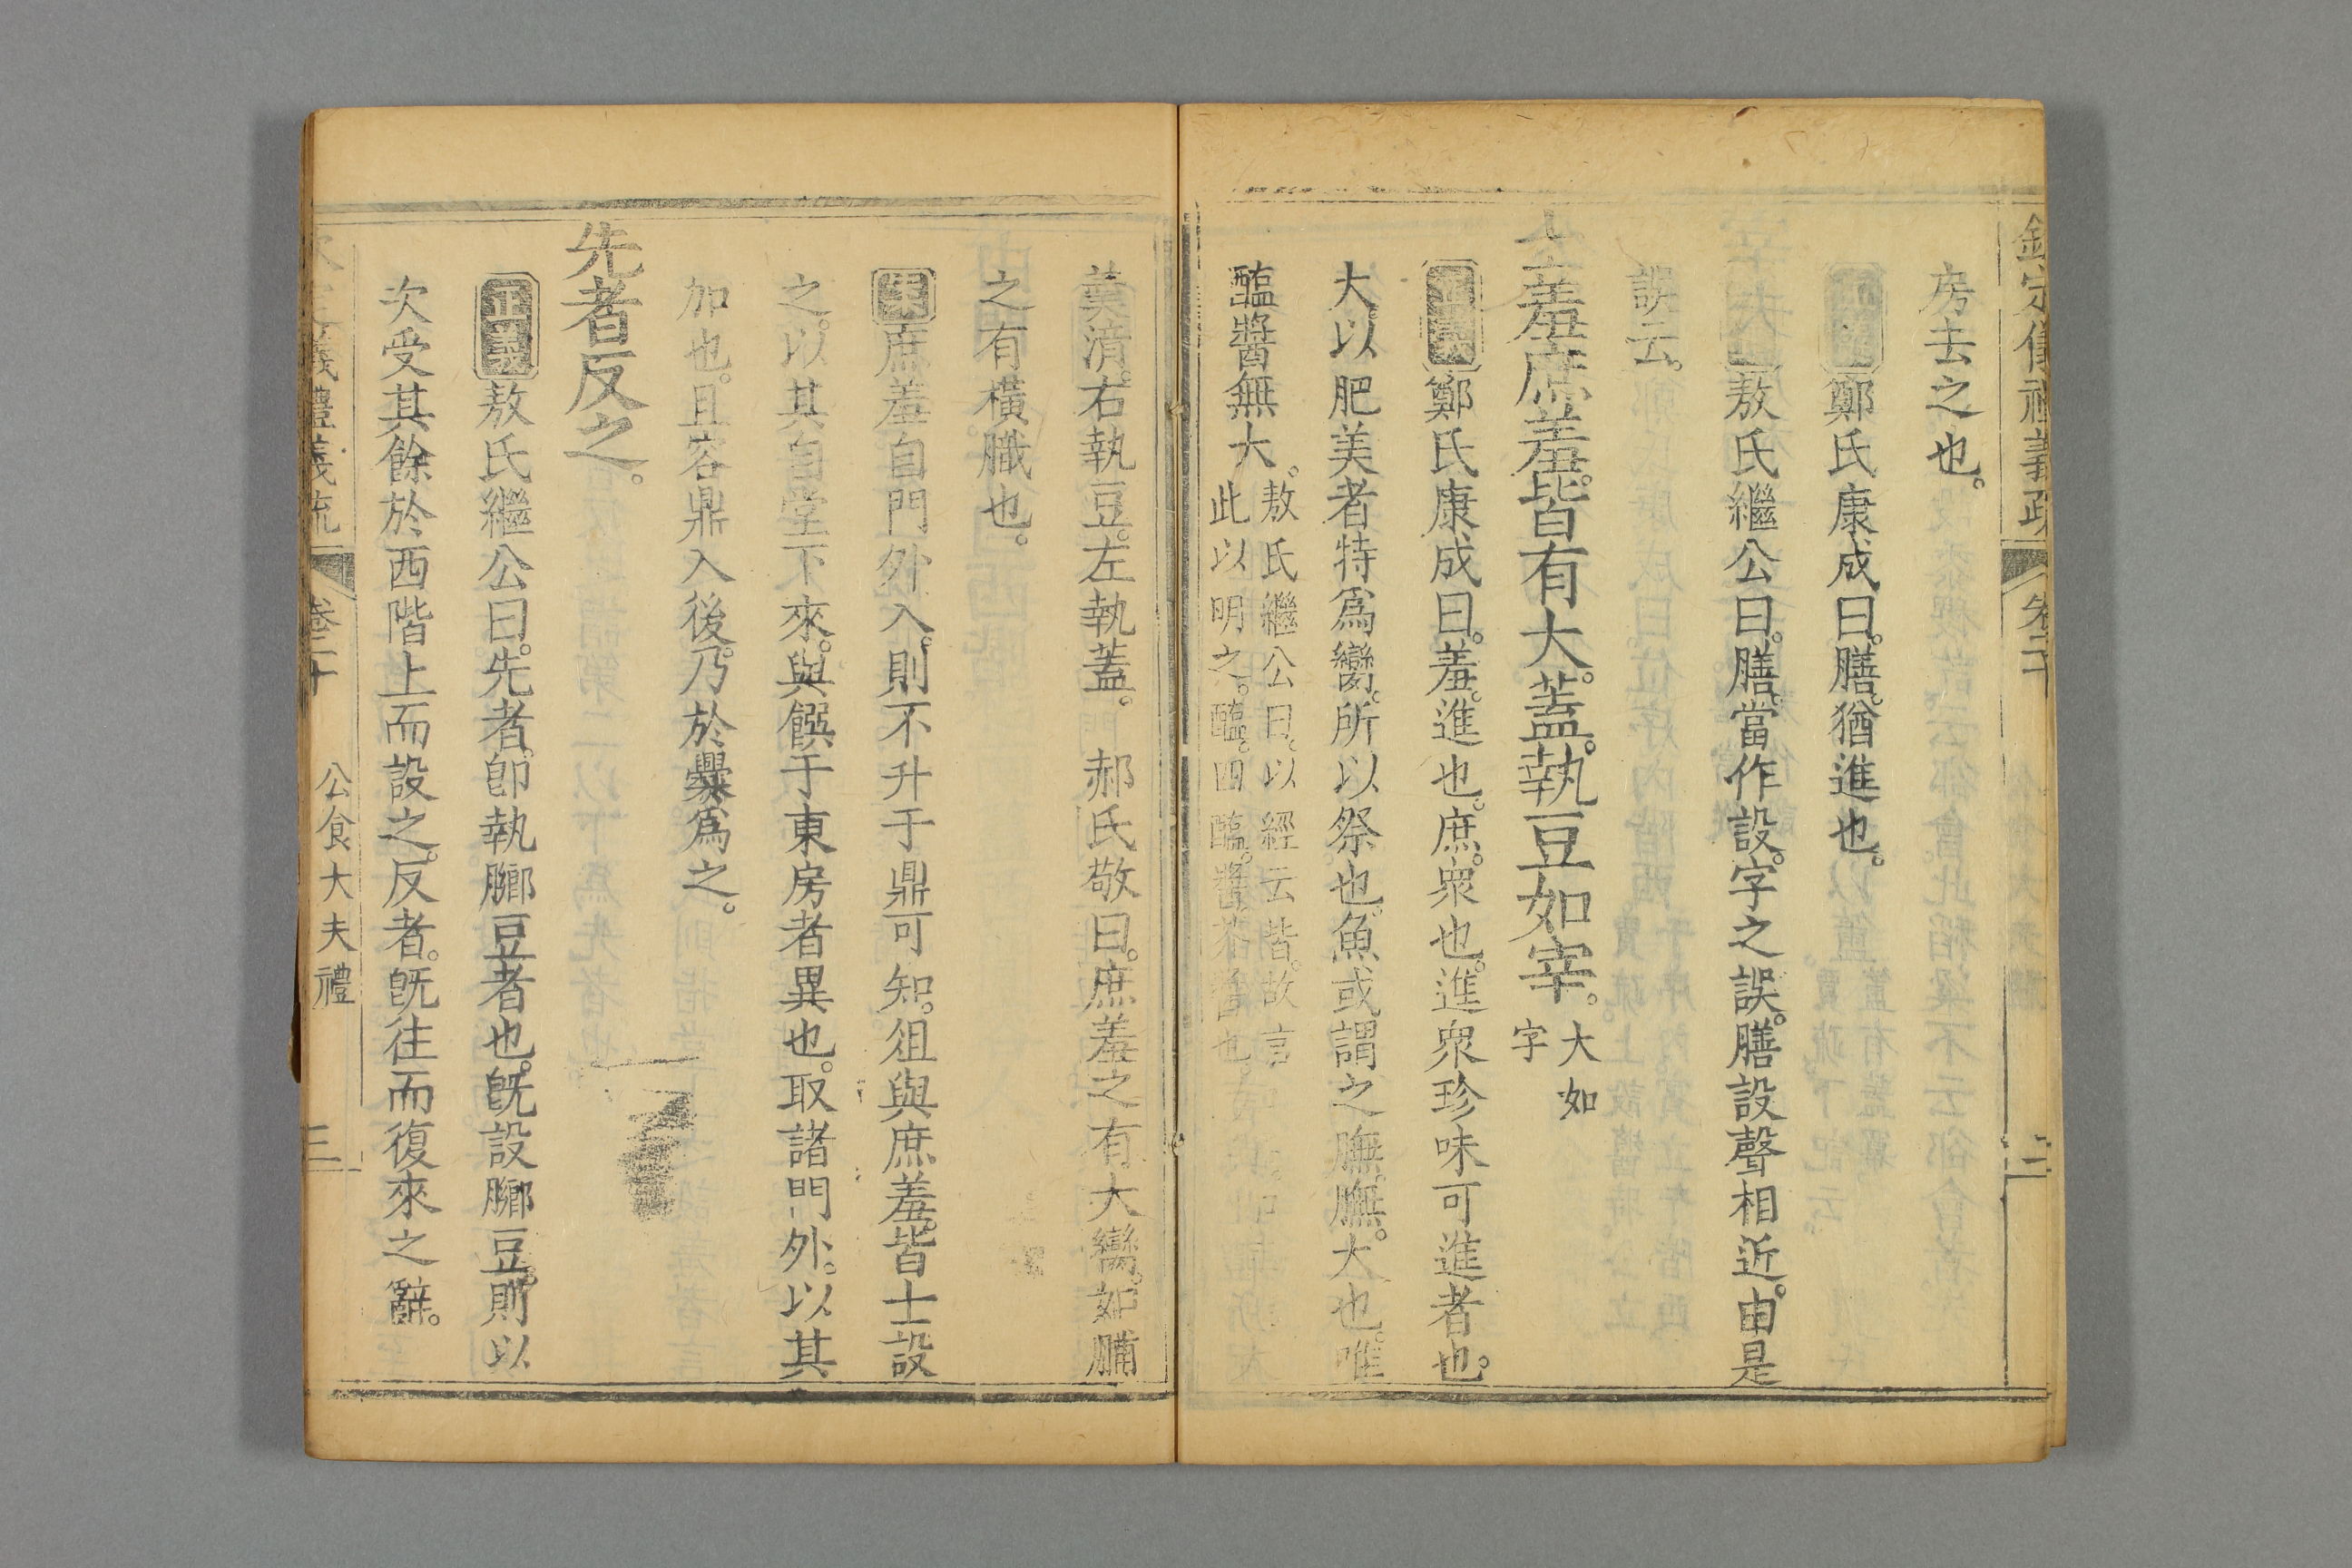 欽定儀禮義疏 卷二十 二
房去之也。
正義鄭氏康成曰。膳。猶進也。
敖氏繼公曰。膳。當作設。字之誤。膳設聲相近。由是
誤云。
士羞庶羞。皆有大。蓋。執豆如宰。大如字。
正義鄭氏康成曰。羞。進也。庶。衆也。進衆珍味可進者也。
大。以肥美者特爲臠。所以祭也。魚或謂之膴。膴。大也。唯
醢醬無大。敖氏繼公曰。以經云皆。故言此以明之。醢。四醢。醬。芥醬也。
羹湆。右執豆。左執蓋。 郝氏敬曰。庶羞之有大臠。如脯
之有橫膱也。
庶羞自門外入。則不升于鼎可知。俎與庶羞。皆士設
之。以其自堂下來。與饌于東房者異也。取諸門外。以其
加也。且容鼎入後。乃於爨爲之。
先者反之。
正義敖氏繼公曰。先者。卽執膷豆者也。旣設膷豆。則以
次受其餘於西階上而設之。反者。旣往而復來之辭。
儀禮義疏 卷二十 公食大夫禮 三